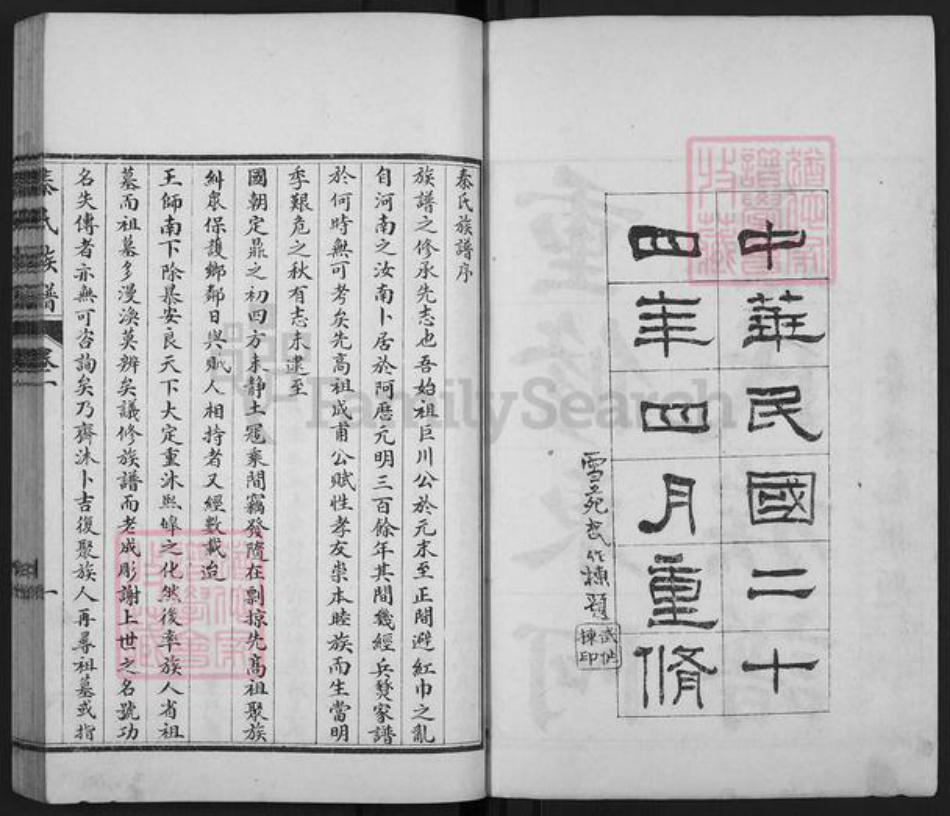 中華民國二十
四年四月重脩
雪苑武作棟題
武作棟印
秦氏族譜序
族譜之修承先志也吾始祖巨川公於元末至正間避紅巾之亂
自河南之汝南卜居於阿厝元明三百餘年其間幾經兵燹家譜
於何時無可考矣先高祖成甫公賦性孝友崇本睦族而生當明
季艱危之秋有志未逮至
國朝定鼎之初四方未靜土寇乘間竊發隨在剽掠先高祖聚族
糾衆保護鄉鄰日與賊人相持者又經數載迨
王師南下除暴安良天下大定重沐熙皞之化然後率族人省祖
墓而祖墓多漫渙莫辨矣議修族譜而老成彫謝上世之名號功
名失傳者亦無可咨詢矣乃齋沐卜吉復聚族人再尋祖墓或指
秦氏族譜
卷一
一
FamilySearch